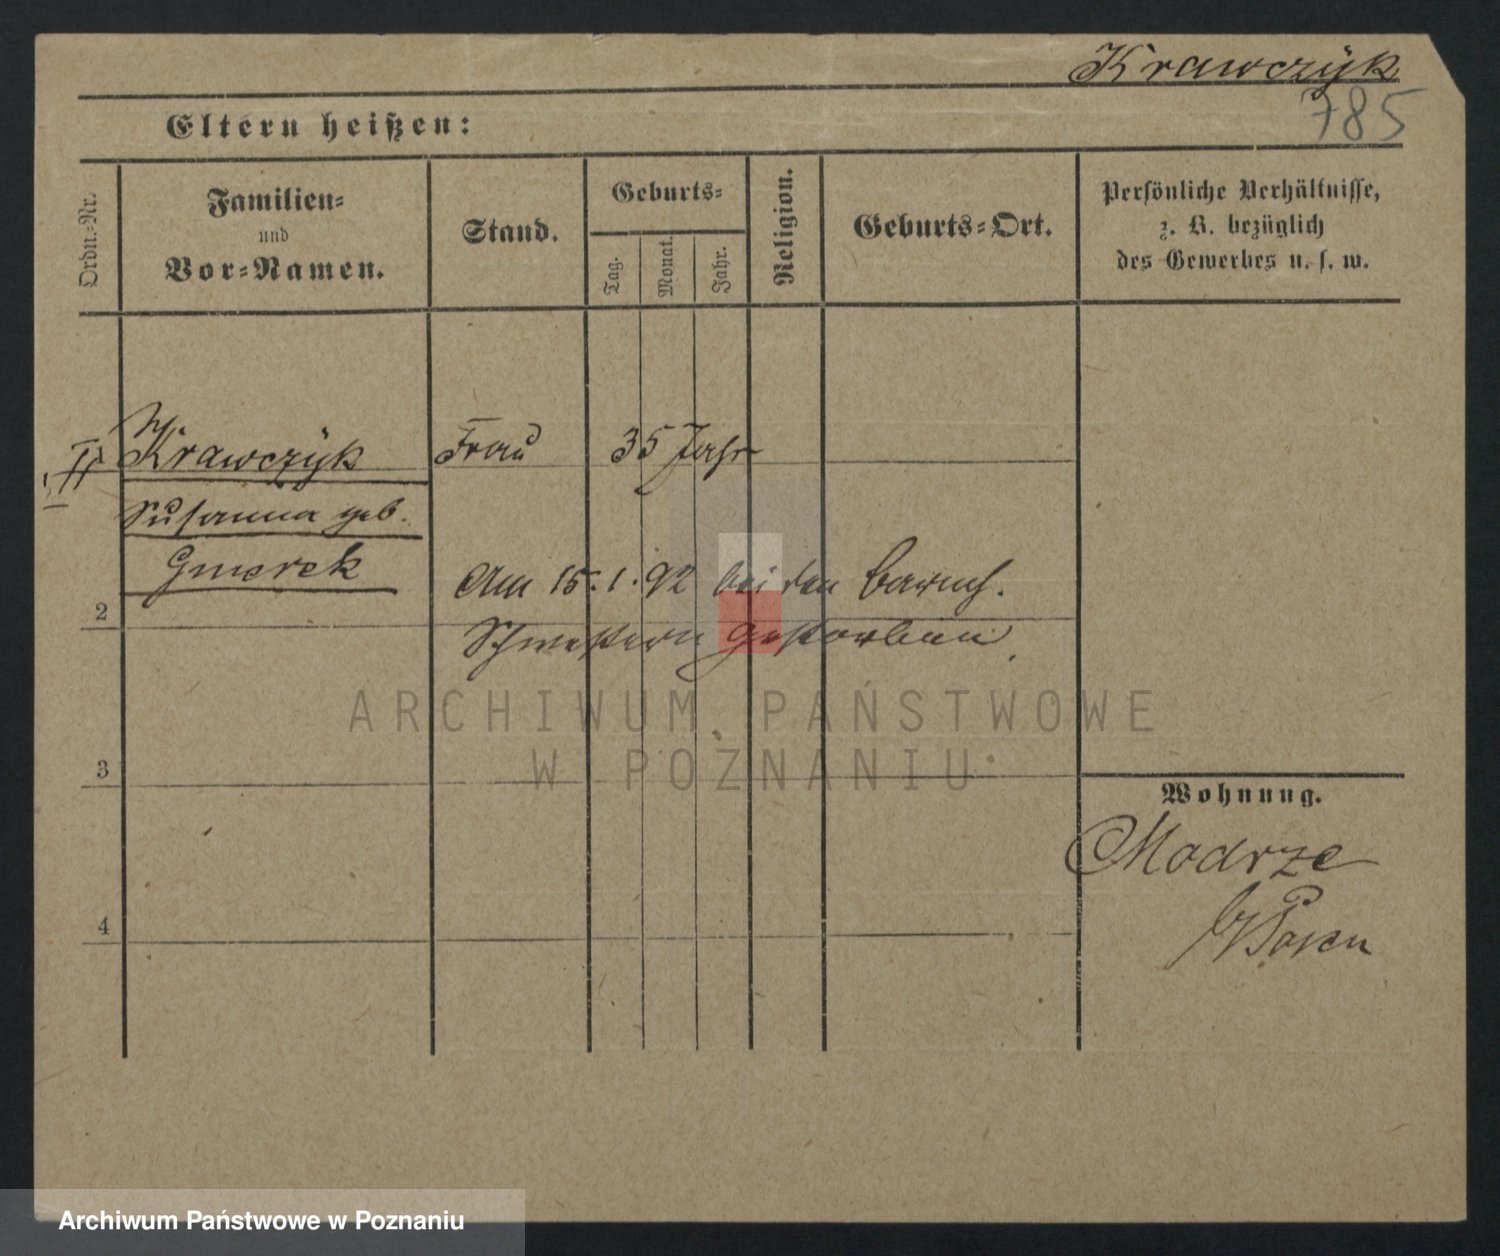 Krawczÿk
785
Eltern heißen:
Ordn.-Nr.
Familien-
und
Vor-Namen.
Stand.
Geburts-
Tag.
Monat.
Jahr.
Religion.
Geburts-Ort.
Persönliche Verhältnisse,
z. B. bezüglich
des Gewerbes u. s. w.
II
Krawczÿk Frau 35 Jahr
Susanna geb.
Gmerek
Am 15.1.92 bei den barmh.
Schwestern gestorben.
2
3
4
Wohnung.
Modrze
b/Posen
ARCHIWUM PAŃSTWOWE
W POZNANIU
Archiwum Państwowe w Poznaniu